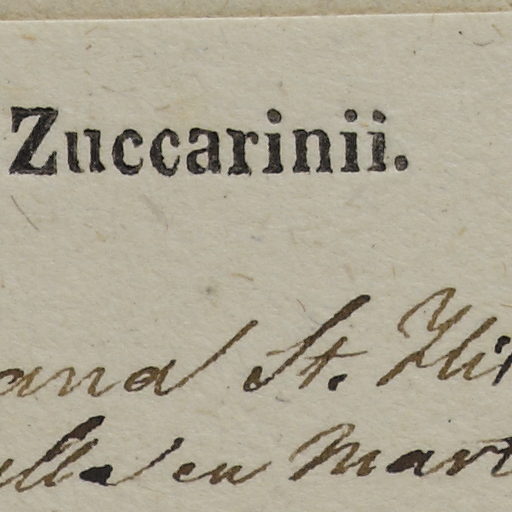 Zuccarinii.
ana St. Hil
lla en Mart